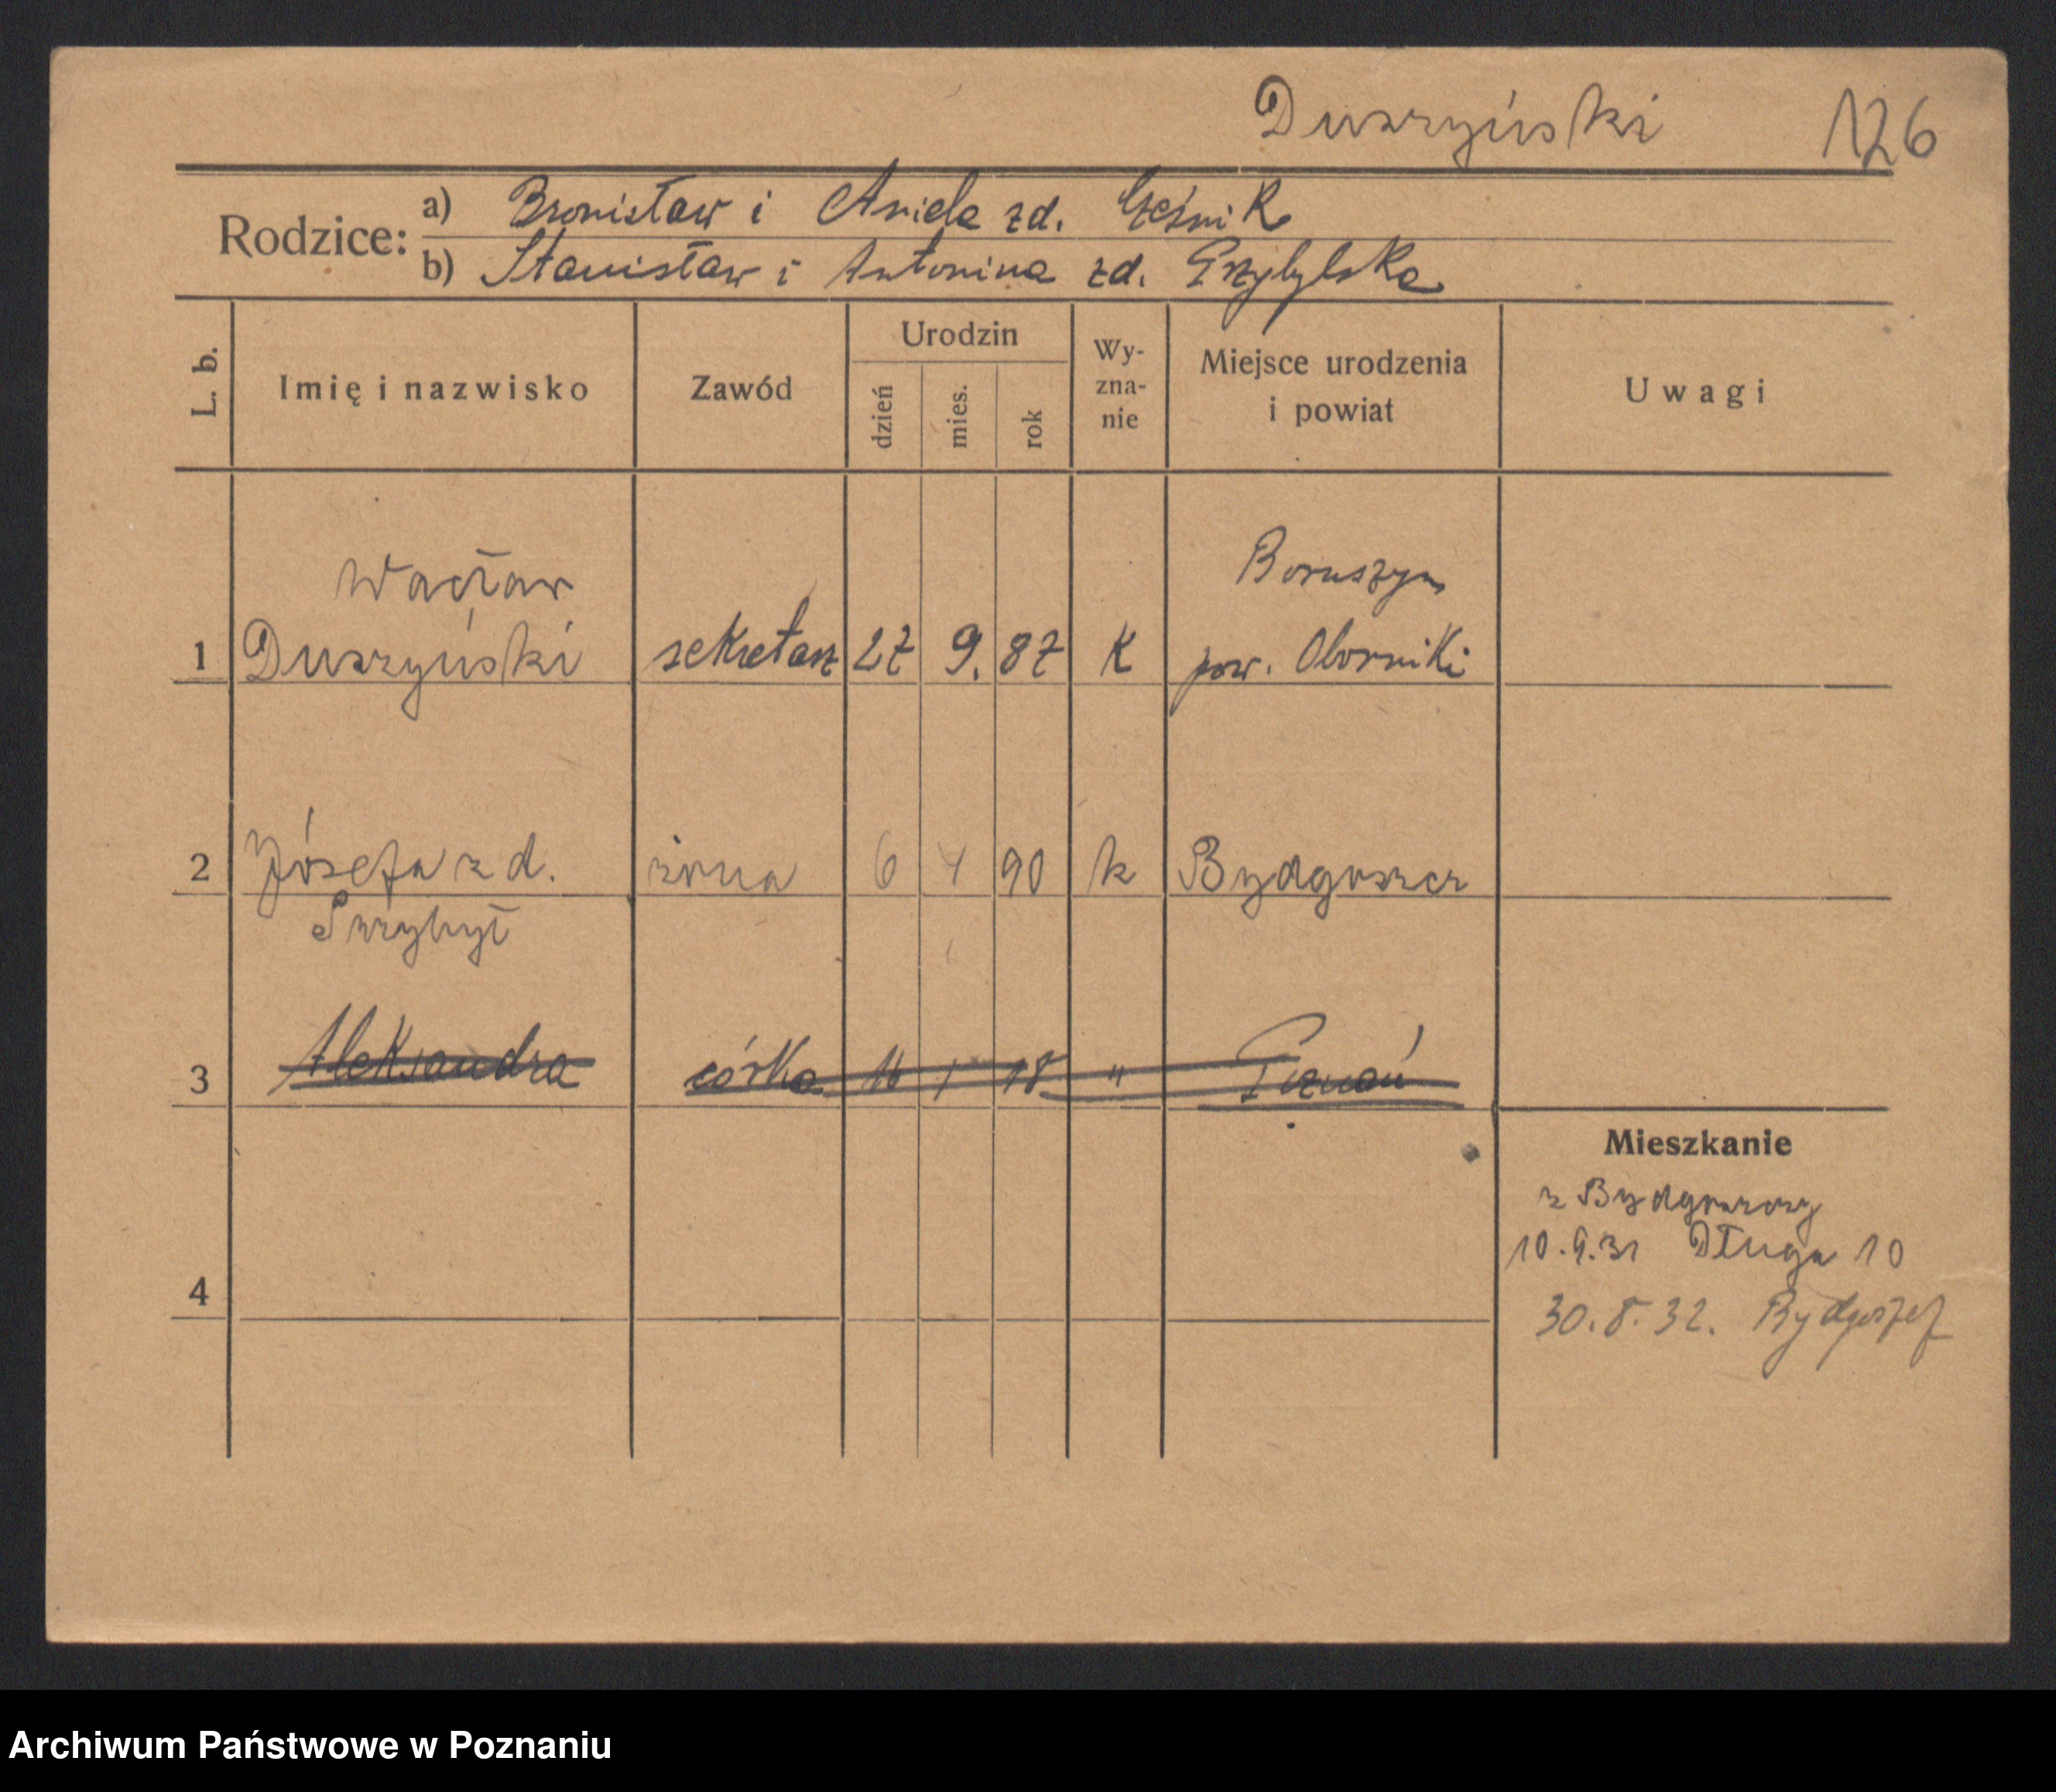 Duszyński 126
Rodzice: a) Bronisław i Aniela zd. Leśnik
b) Stanisław i Antonina zd. Przybylska
L. b. Imię i nazwisko Zawód Urodzin dzień mies. rok Wy-zna-nie Miejsce urodzenia i powiat Uwagi
Wacław Boruszyn
1 Duszyński sekretarz 27 9. 87 K pow. Oborniki
2 Józefa zd. żona 6 4 90 k Bydgoszcz
Przybył
3 Aleksandra córka 16 1 18 " Poznań
Mieszkanie
z Bydgoszczy
10.9.31 Długa 10
4
30.8.32. Bydgoszcz
Archiwum Państwowe w Poznaniu